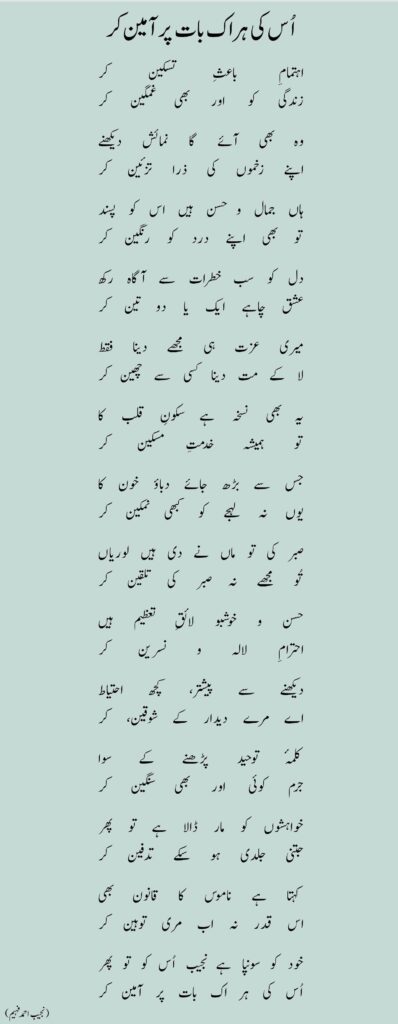 اُس کی ہر اک بات پر آمین کر
اہتمامِ باعثِ تسکین کر
زندگی کو اور بھی غمگین کر
وہ بھی آئے گا نمائش دیکھنے
اپنے زخموں کی ذرا تزئین کر
ہاں جمال و حسن ہیں اس کو پسند
تو بھی اپنے درد کو رنگین کر
دل کو سب خطرات سے آگاہ رکھ
عشق چاہے ایک یا دو تین کر
میری عزت ہی مجھے دینا فقط
لا کے مت دینا کسی سے چھین کر
یہ بھی نسخہ ہے سکونِ قلب کا
تو ہمیشہ خدمتِ مسکین کر
جس سے بڑھ جائے دباؤ خون کا
یوں نہ لہجے کو کبھی نمکین کر
صبر کی تو ماں نے دی ہیں لوریاں
تُو مجھے نہ صبر کی تلقین کر
حسن و خوشبو لائقِ تعظیم ہیں
احترامِ لالہ و نسرین کر
دیکھنے سے پیشتر، کچھ احتیاط
اے مرے دیدار کے شوقین، کر
کلمۂ توحید پڑھنے کے سوا
جرم کوئی اور بھی سنگین کر
خواہشوں کو مار ڈالا ہے تو پھر
جتنی جلدی ہو سکے تدفین کر
کہتا ہے ناموس کا قانون بھی
اس قدر نہ اب مری توہین کر
خود کو سونپا ہے نجیب اُس کو تو پھر
اُس کی ہر اک بات پر آمین کر
(نجیب احمد فہیم)